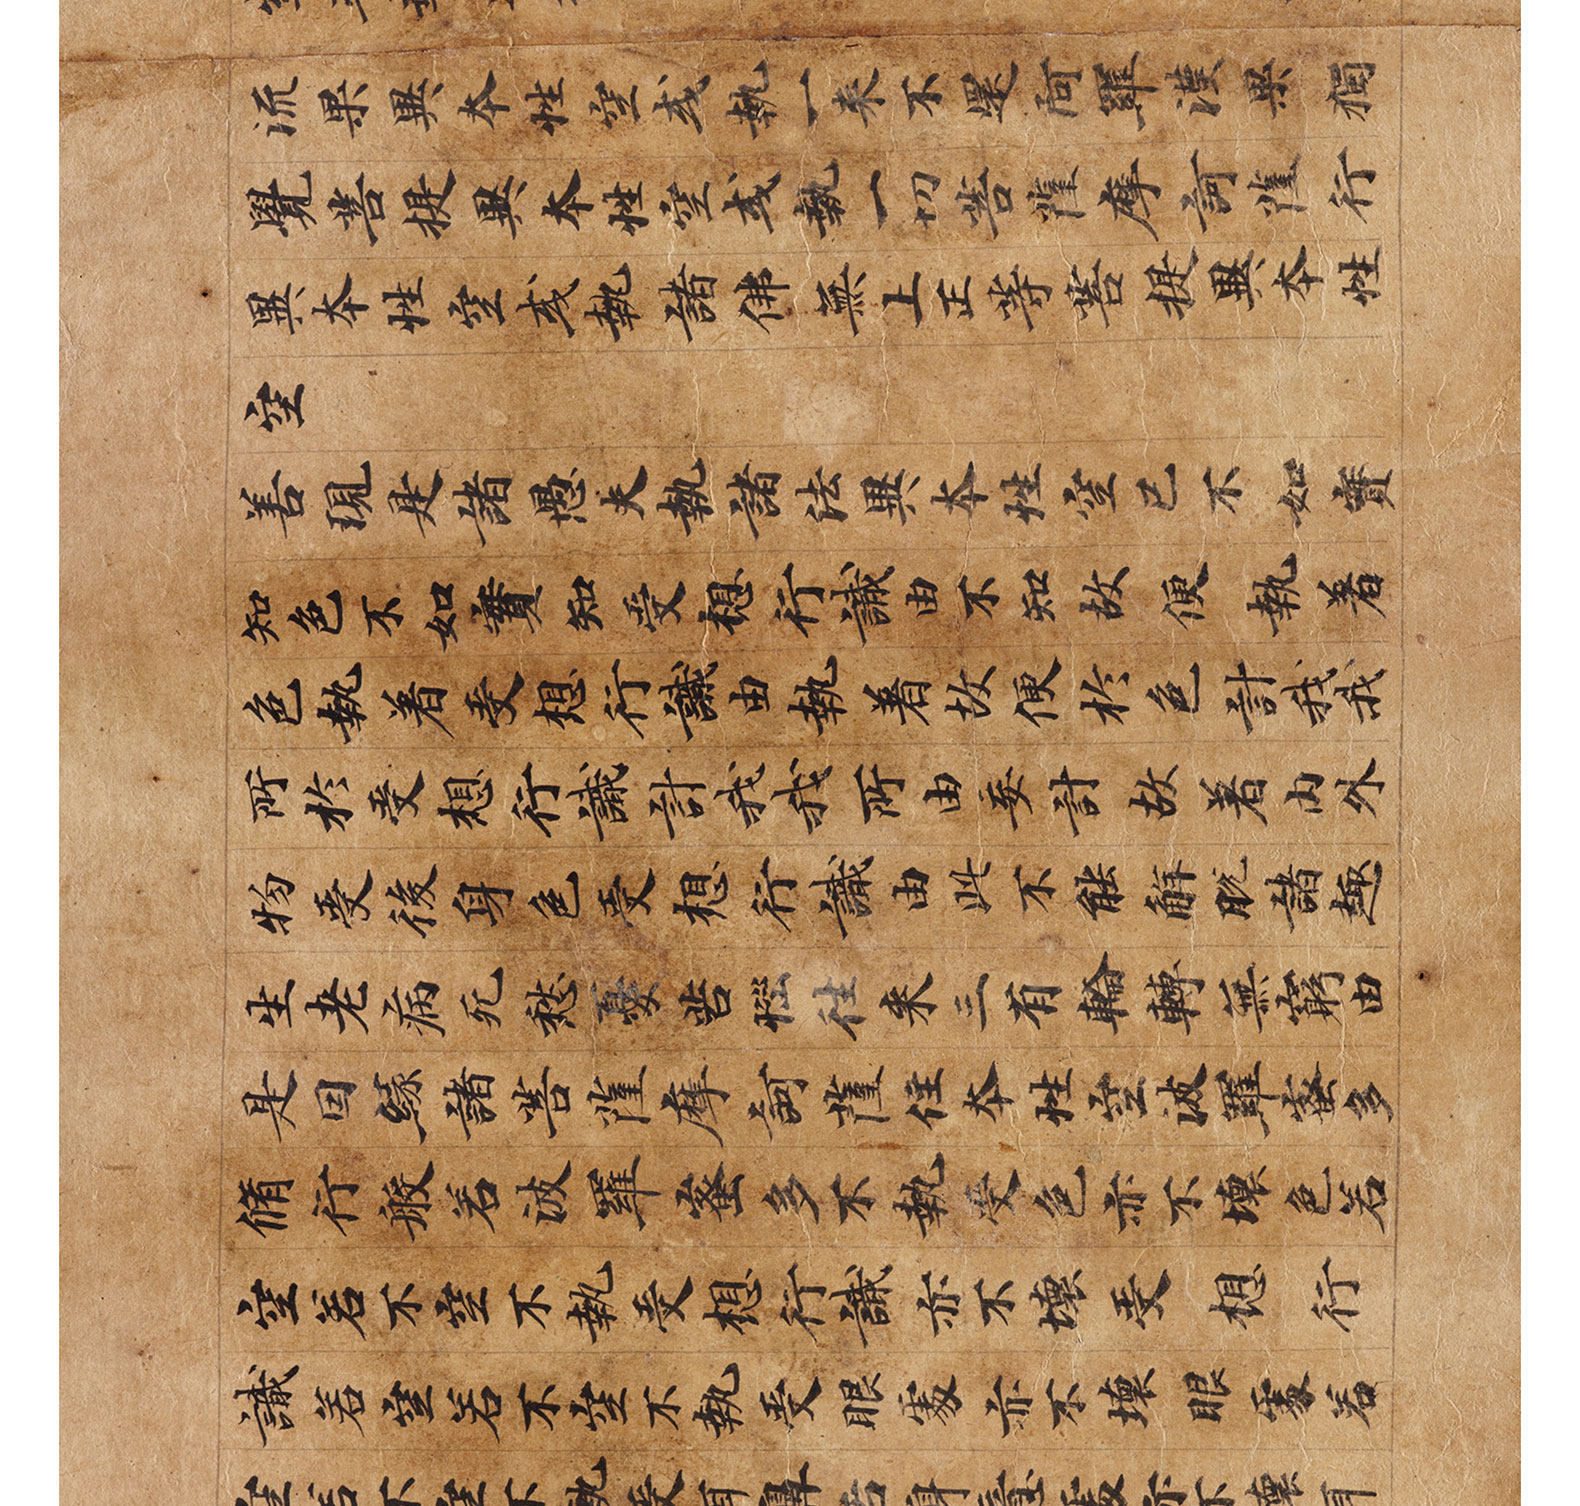 流果異本性空或執一来不還阿羅漢果獨
覺菩提異本性空或執一切菩薩摩訶薩行
異本性空或執諸佛無上正等菩提異本性
空
善現是諸愚夫執諸法異本性空已不如實
知色不如實知受想行識由不知故便執著
色執著受想行識由執著故便於色計我我
所於受想行識計我我所由妄計故著内外
物受後身色受想行識由此不能解脫諸趣
生老病死愁憂苦惱往来三有輪轉無窮由
是因緣諸菩薩摩訶薩住本性空波羅蜜多
脩行般若波羅蜜多不執受色亦不壞色若
空若不空不執受想行識亦不壞受想行
識若空若不空不執受眼處亦不壞眼處若
空若不空不執受耳鼻舌身意處亦不壞耳